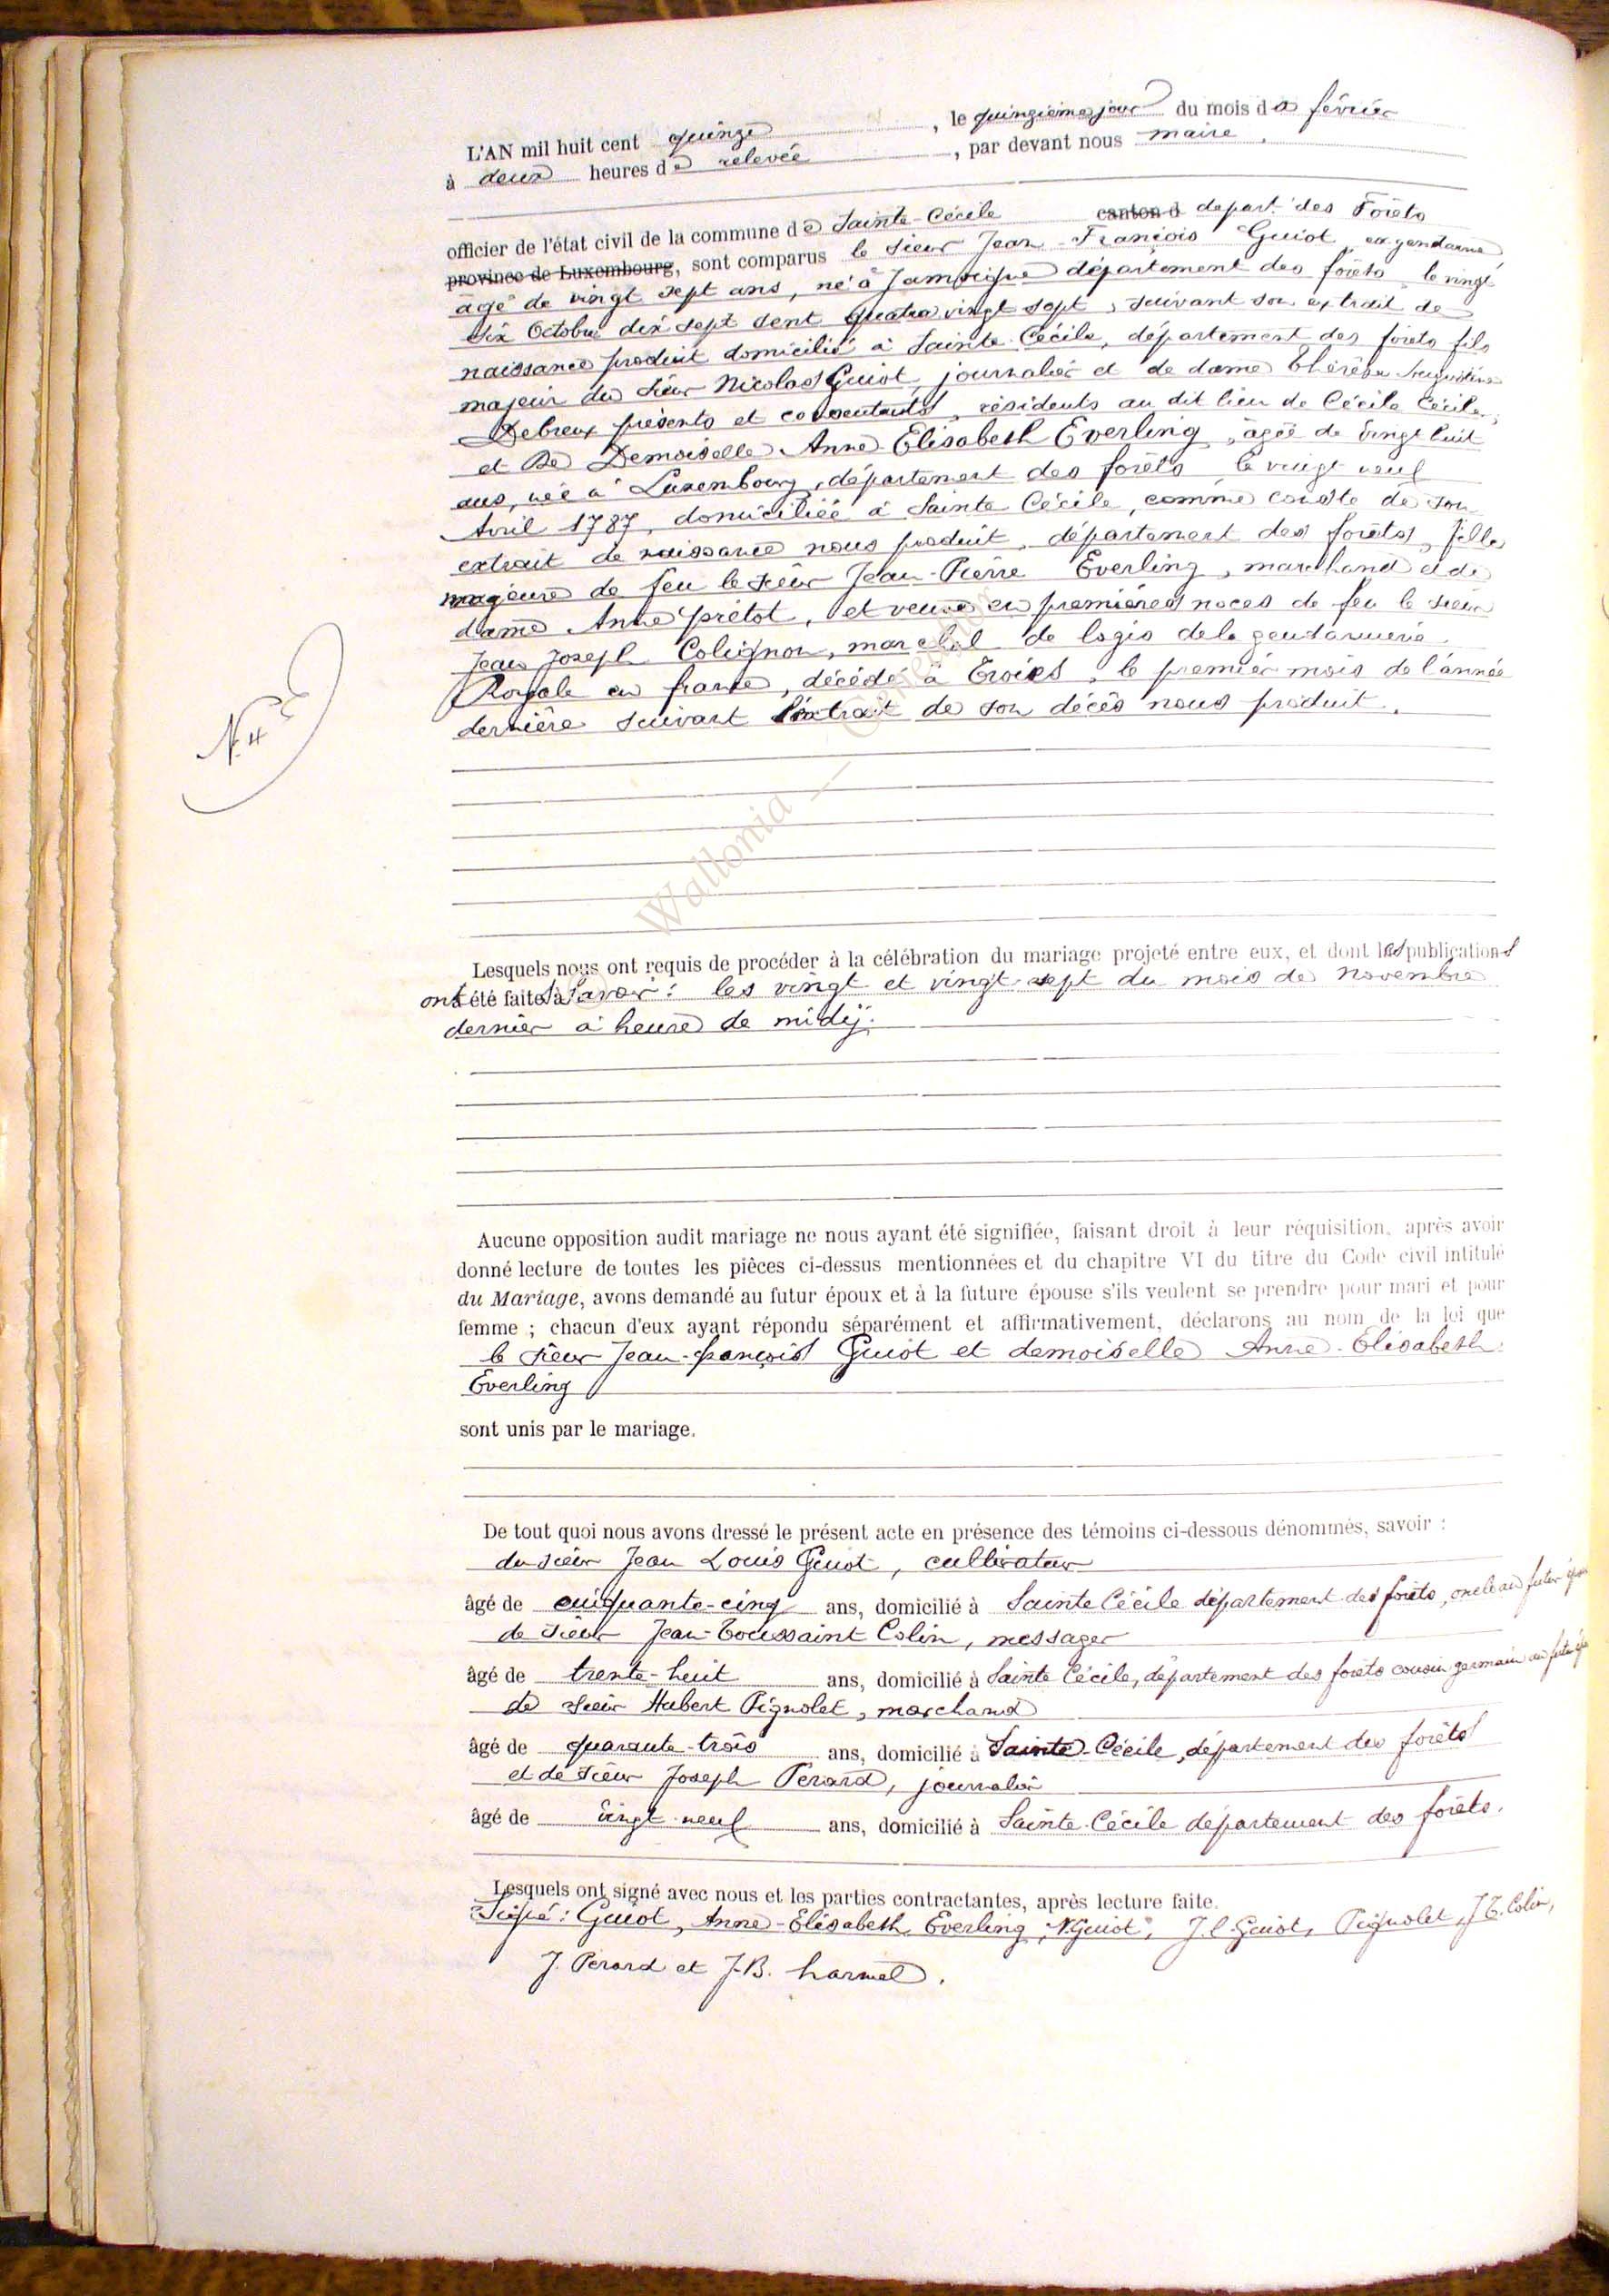 L'AN mil huit cent quinze, le quinzième jour du mois de février
à deux heures de relevée, par devant nous maire
officier de l'état civil de la commune de Sainte-Cécile canton d depart. des Forêts
province de Luxembourg, sont comparus le sieur Jean-François Guiot, ex gendarme,
âgé de vingt sept ans, né à Jamoigne département des forêts le vingt
six Octobre dix sept cent quatre vingt sept, suivant son extrait de
naissance produit domicilié à Sainte Cécile, département des forêts fils
majeur du sieur Nicolas Guiot, journalier et de dame Thérèse Augustine
Debreux présents et consentants, résidents au dit lieu de Cécile Cécile,
et De Demoiselle Anne Elisabeth Everling, âgée de vingt huit
ans, née à Luxembourg, département des forêts le vingt neuf
Avril 1787, domiciliée à Sainte Cécile, comme conste de son
extrait de naissance nous produit, département des forêts, fille
majeure de feu le sieur Jean-Pierre Everling, marchand et de
dame Anne prétot, et veuve en premières noces de feu le sieur
Jean Joseph Colignon, marchal de logis de la gendarmerie
Royale en france, décédé à Troies, le premier mois de l'année
dernière suivant l'extrait de son décès nous produit.
N. 4
Wallonia
Lesquels nous ont requis de procéder à la célébration du mariage projeté entre eux, et dont les publications
ont été faites à Savoir : les vingt et vingt-sept du mois de novembre
dernier à heure de midij.
Aucune opposition audit mariage ne nous ayant été signifiée, faisant droit à leur réquisition, après avoir
donné lecture de toutes les pièces ci-dessus mentionnées et du chapitre VI du titre du Code civil intitulé
du Mariage, avons demandé au futur époux et à la future épouse s'ils veulent se prendre pour mari et pour
femme ; chacun d'eux ayant répondu séparément et affirmativement, déclarons au nom de la loi que
le sieur Jean-françois Guiot et demoiselle Anne-Elisabeth
Everling
sont unis par le mariage.
De tout quoi nous avons dressé le présent acte en présence des témoins ci-dessous dénommés, savoir :
du sieur Jean Louis Guiot, cultivateur
âgé de cinquante-cinq ans, domicilié à Sainte Cécile département des forêts, oncle au futur époux
de sieur Jean-Toussaint Colin, messager
âgé de trente-huit ans, domicilié à Sainte Cécile, département des forêts cousin germain au futur
de sieur Hubert Pignolet, marchand
âgé de quarante-trois ans, domicilié à Sainte-Cécile, département des forêts
et de sieur Joseph Perard, journalier
âgé de vingt-neuf ans, domicilié à Sainte-Cécile département des forêts.
Lesquels ont signé avec nous et les parties contractantes, après lecture faite.
Signé : Guiot, Anne-Elisabeth Everling, N. Guiot, J. l. Guiot, Pignolet, J. T. Colin,
J. Perard et J.B. harmel.